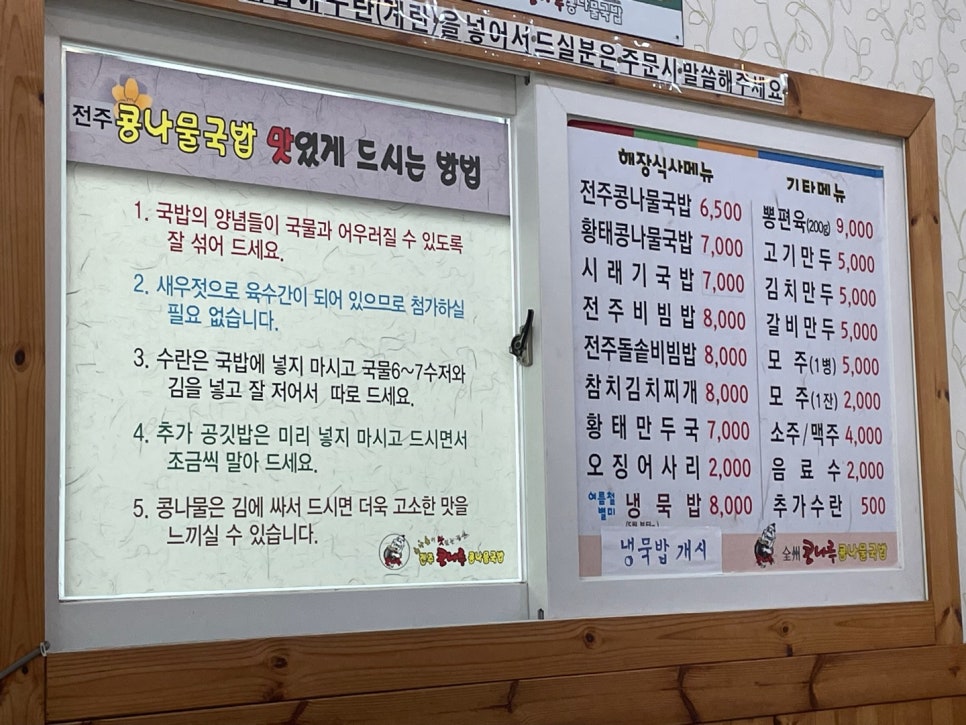 수란(계란)을 넣어서 드실분은 주문시 말씀해주세요
전주 콩나물국밥 맛있게 드시는 방법
1. 국밥의 양념들이 국물과 어우러질 수 있도록
잘 섞어 드세요.
2. 새우젓으로 육수간이 되어 있으므로 첨가하실
필요 없습니다.
3. 수란은 국밥에 넣지 마시고 국물6~7수저와
김을 넣고 잘 저어서 따로 드세요.
4. 추가 공깃밥은 미리 넣지 마시고 드시면서
조금씩 말아 드세요.
5. 콩나물은 김에 싸서 드시면 더욱 고소한 맛을
느끼실 수 있습니다.
전주 콩나루 콩나물국밥
해장식사메뉴
전주콩나물국밥 6,500
황태콩나물국밥 7,000
시래기국밥 7,000
전주비빔밥 8,000
전주돌솥비빔밥 8,000
참치김치찌개 8,000
황태만두국 7,000
오징어사리 2,000
여름철 별미 냉묵밥 8,000
냉묵밥 개시
기타메뉴
뽕편육(200g) 9,000
고기만두 5,000
김치만두 5,000
갈비만두 5,000
모주(1병) 5,000
모주(1잔) 2,000
소주/맥주 4,000
음료수 2,000
추가수란 500
全州 콩나루 콩나물국밥